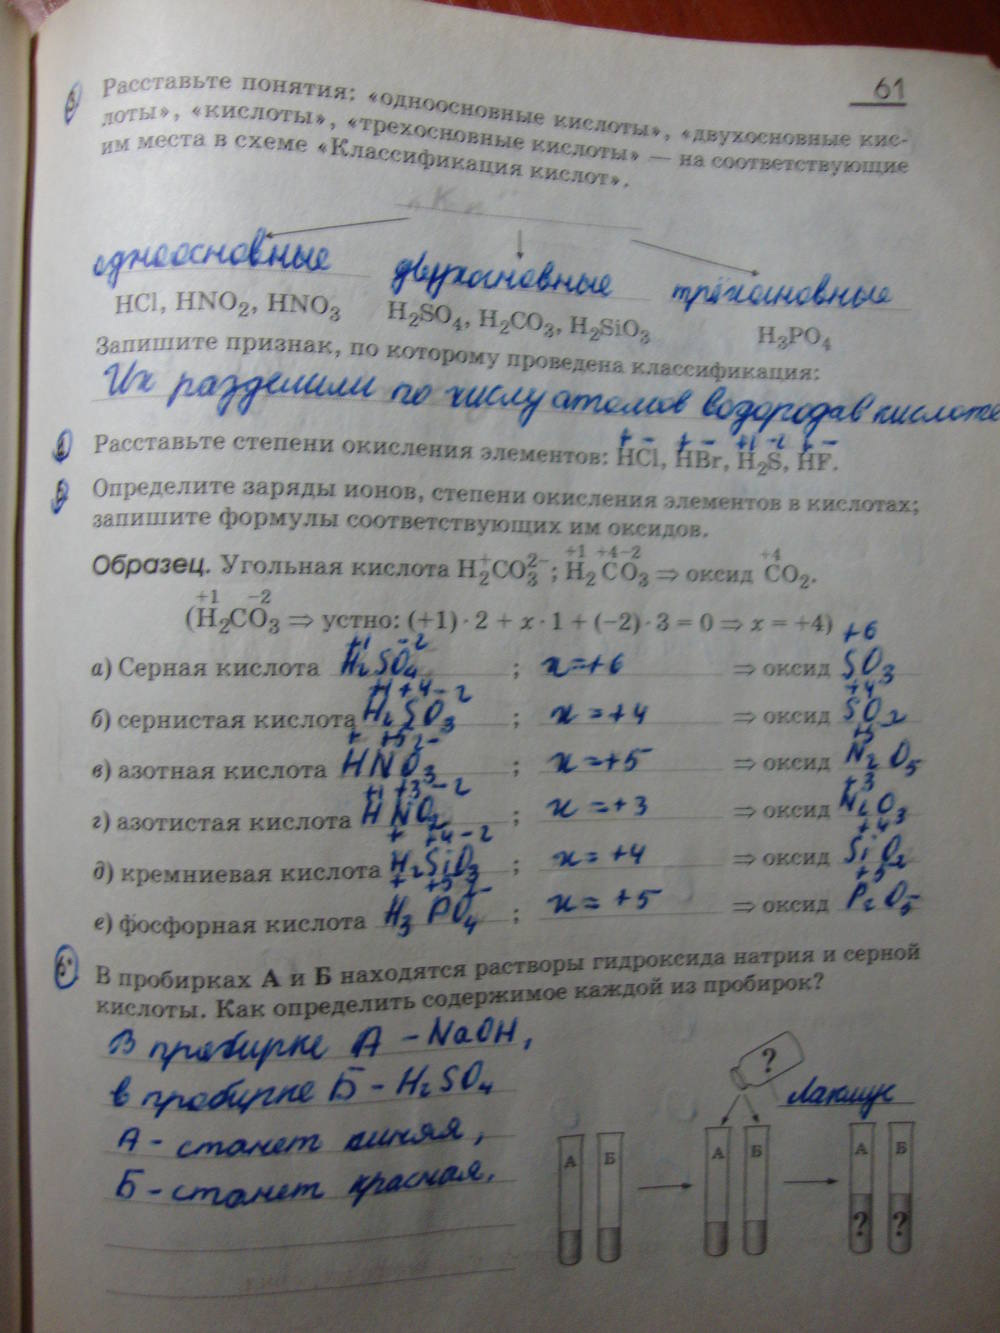 61
Расставьте понятия: «одноосновные кислоты», «двухосновные кис-
лоты», «кислоты», «трехосновные кислоты» — на соответствующие
им места в схеме «Классификация кислот».
одноосновные двухосновные трёхосновные
HCl, HNO₂, HNO₃ H₂SO₄, H₂CO₃, H₂SiO₃ H₃PO₄
Запишите признак, по которому проведена классификация:
Их разделили по числу атомов водорода в кислоте
+ − + − +1 −2 + −
Расставьте степени окисления элементов: HCl, HBr, H₂S, HF.
5 Определите заряды ионов, степени окисления элементов в кислотах;
запишите формулы соответствующих им оксидов.
+1 +4 −2 +4
Образец. Угольная кислота H₂⁺CO₃²⁻; H₂CO₃ ⇒ оксид CO₂.
+1 −2
(H₂CO₃ ⇒ устно: (+1)·2 + x·1 + (−2)·3 = 0 ⇒ x = +4)
+1 −2 +6
а) Серная кислота H₂SO₄ ; x=+6 ⇒ оксид SO₃
+1 +4 −2 +4
б) сернистая кислота H₂SO₃ ; x=+4 ⇒ оксид SO₂
+ +5 2− +5
в) азотная кислота HNO₃ ; x=+5 ⇒ оксид N₂O₅
+1 +3 −2 +3
г) азотистая кислота HNO₂ ; x=+3 ⇒ оксид N₂O₃
+ +4 −2 +4
д) кремниевая кислота H₂SiO₃ ; x=+4 ⇒ оксид SiO₂
+ +5 2− +5
е) фосфорная кислота H₃PO₄ ; x=+5 ⇒ оксид P₂O₅
6* В пробирках А и Б находятся растворы гидроксида натрия и серной
кислоты. Как определить содержимое каждой из пробирок?
В пробирке А – NaOH,
в пробирке Б – H₂SO₄
А – станет синяя,
Б – станет красная.
?
Лакмус
А Б А Б А Б
? ?